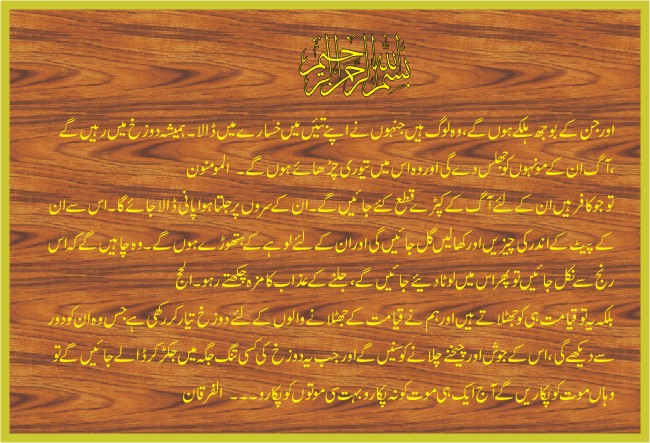 بسم اللہ الرحمن الرحیم
اور جن کے بوجھ ہلکے ہوں گے، وہ لوگ ہیں جنہوں نے اپنے تئیں میں خسارے میں ڈالا۔ ہمیشہ دوزخ میں رہیں گے
،آگ ان کے مونہوں کو جھلس دے گی اور وہ اس میں تیوری چڑھائے ہوں گے۔ المومنون
تو جو کافر ہیں ان کے لئے آگ کے کپڑے قطع کئے جائیں گے۔ ان کے سروں پر جلتا ہوا پانی ڈالا جائے گا۔ اس سے ان
کے پیٹ کے اندر کی چیزیں اور کھالیں گل جائیں گی اور ان کے لئے لوہے کے ہتھوڑے ہوں گے۔ وہ چاہیں گے کہ اس
رنج سے نکل جائیں تو پھر اس میں لوٹا دیئے جائیں گے، جلنے کے عذاب کا مزہ چکھتے رہو۔ الحج
بلکہ یہ تو قیامت ہی کو جھٹلاتے ہیں اور ہم نے قیامت کے جھٹلانے والوں کے لئے دوزخ تیار کر رکھی ہے جس وہ ان کو دور
سے دیکھے گی، اس کے جوش اور چیخنے چلانے کو سنیں گے اور جب یہ دوزخ کی کسی تنگ جگہ میں جکڑ کر ڈالے جائیں گے تو
وہاں موت کو پکاریں گے آج ایک ہی موت کو نہ پکارو بہت سی موتوں کو پکارو۔۔۔ الفرقان